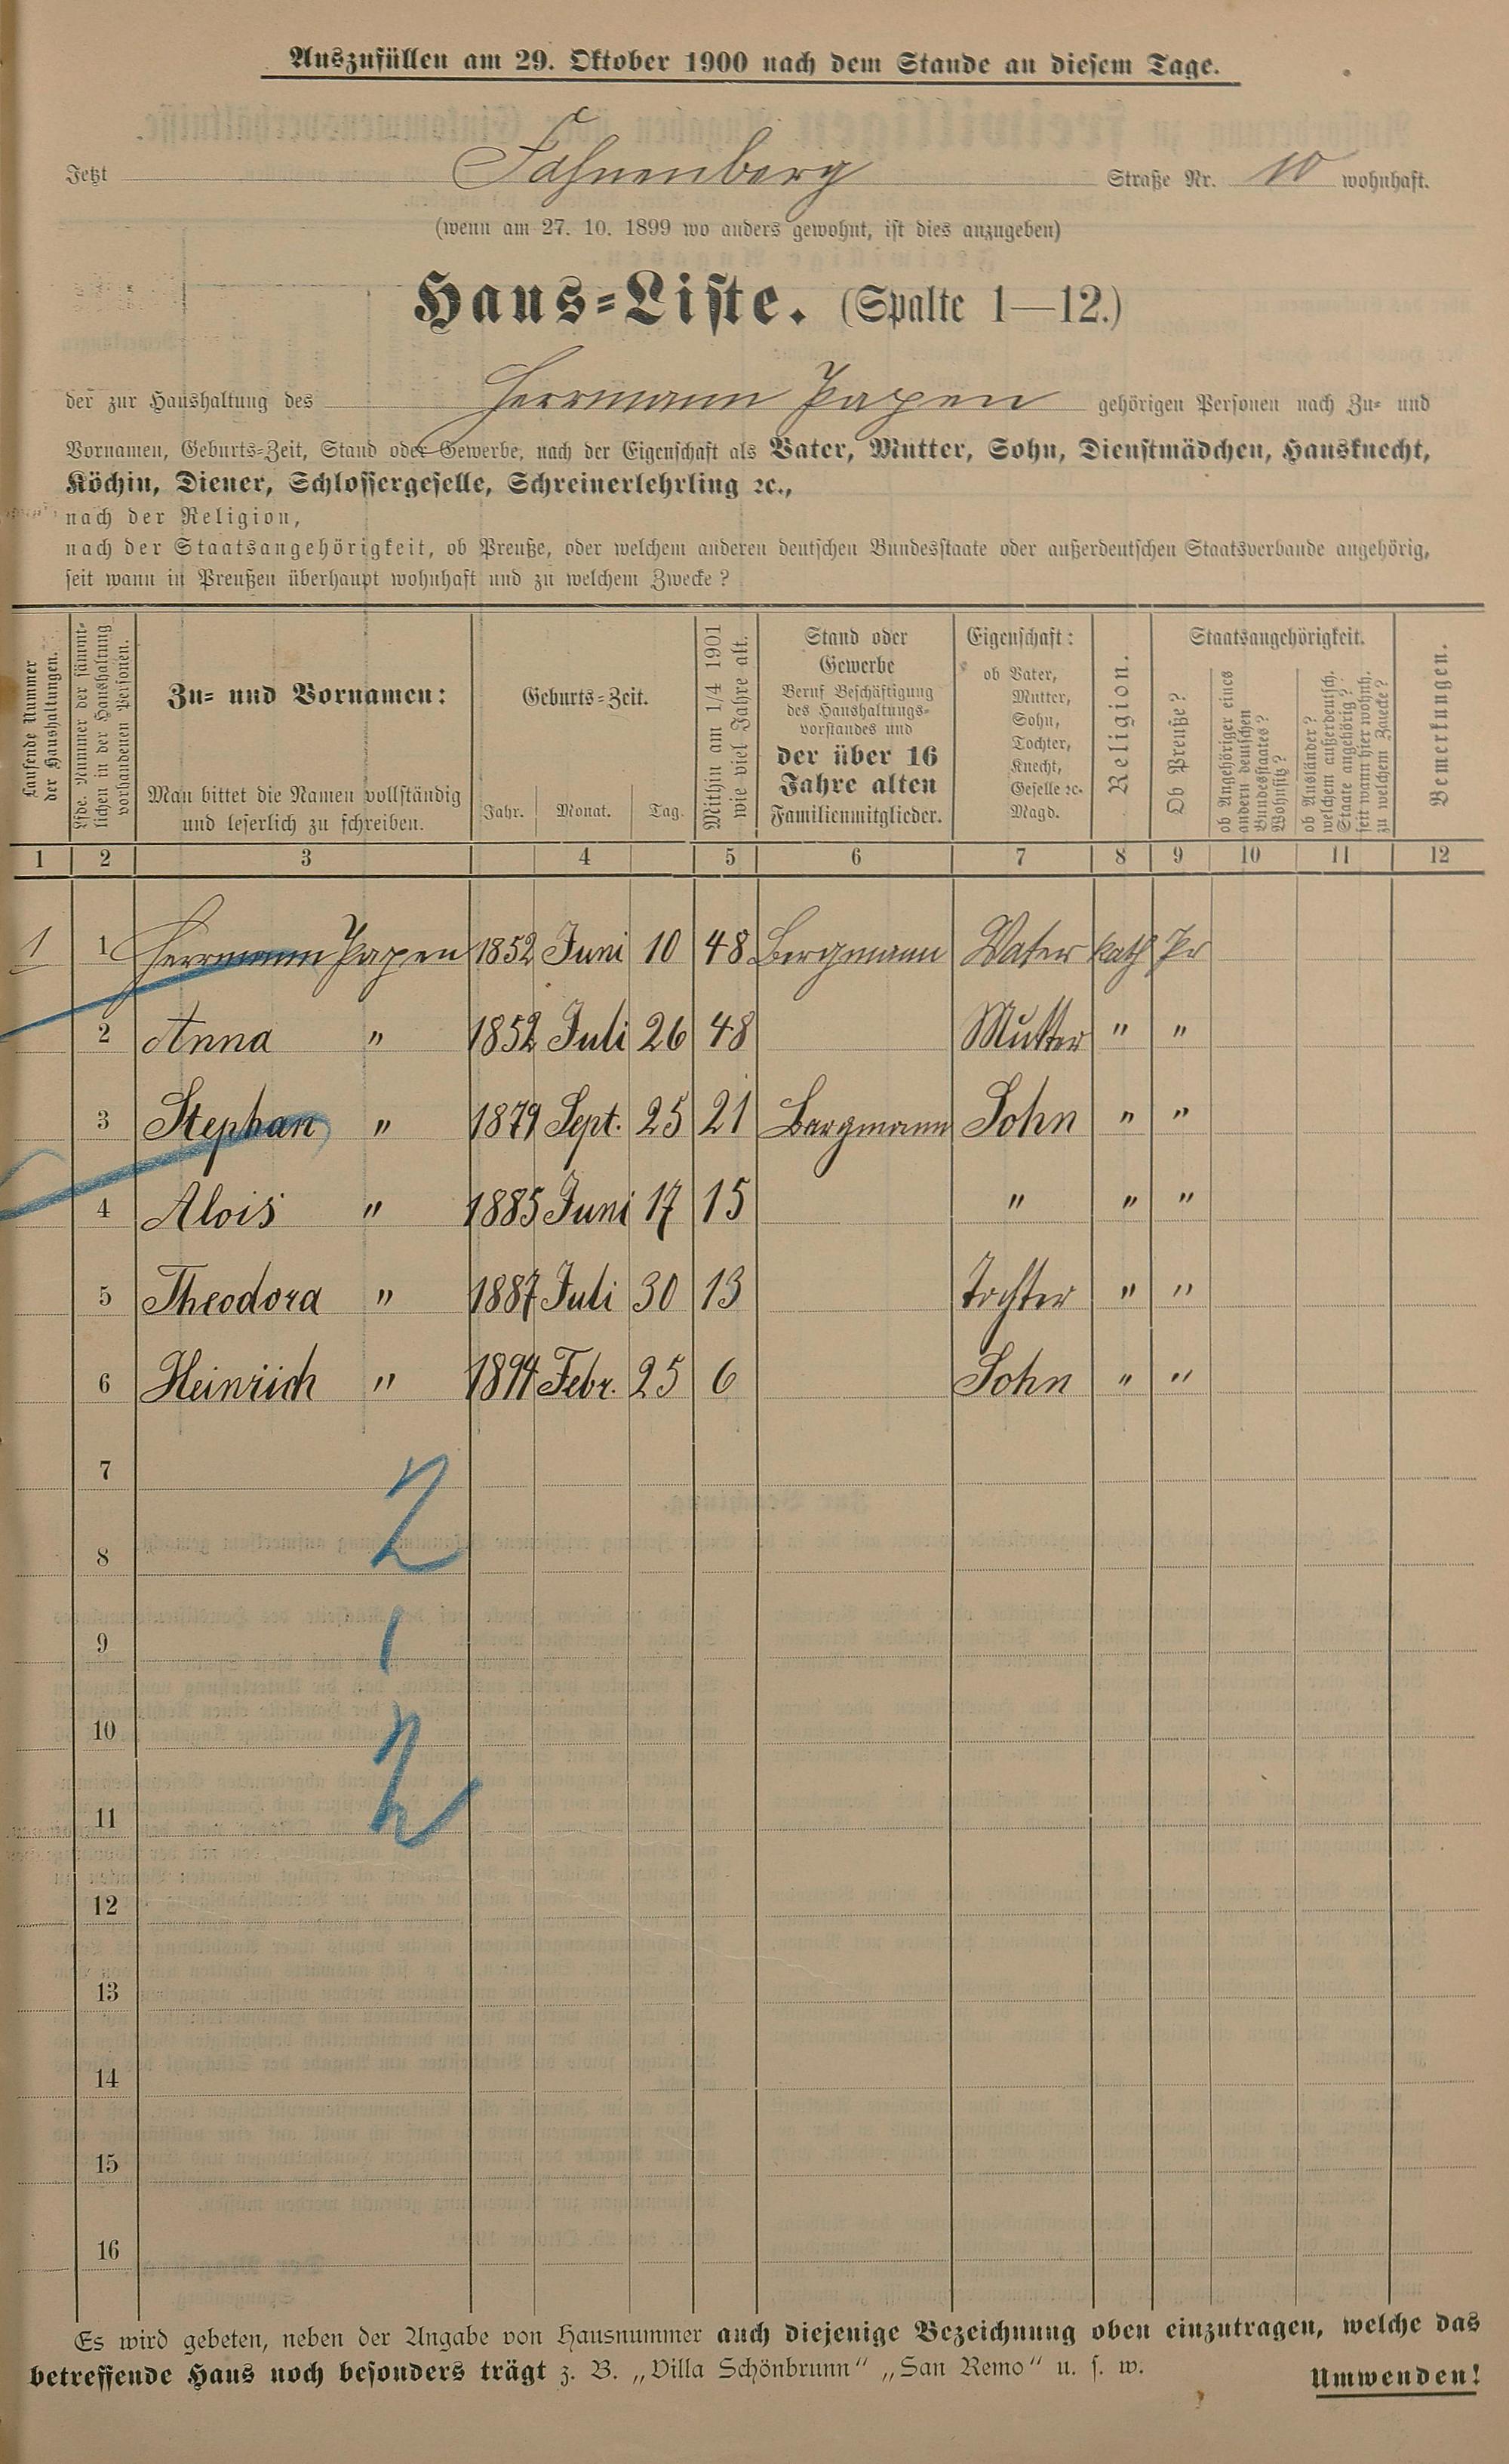 Auszufüllen am 29. Oktober 1900 nach dem Stande an diesem Tage.
Jetzt Fahnenberg Straße Nr. 10 wohnhaft.
(wenn am 27. 10. 1899 wo anders gewohnt, ist dies anzugeben)
Haus-Liste. (Spalte 1—12.)
der zur Haushaltung des Herrmann Papen gehörigen Personen nach Zu- und
Vornamen, Geburts-Zeit, Stand oder Gewerbe, nach der Eigenschaft als Vater, Mutter, Sohn, Dienstmädchen, Hausknecht,
Köchin, Diener, Schlossergeselle, Schreinerlehrling ꝛc.,
nach der Religion,
nach der Staatsangehörigkeit, ob Preuße, oder welchem anderen deutschen Bundesstaate oder außerdeutschen Staatsverbande angehörig,
seit wann in Preußen überhaupt wohnhaft und zu welchem Zwecke?
Laufende Nummer
der Haushaltungen.
Lfde. Nummer der sämmt-
lichen in der Haushaltung
vorhandenen Personen.
Zu- und Vornamen:
Man bittet die Namen vollständig
und leserlich zu schreiben.
Geburts-Zeit.
Jahr. Monat. Tag.
Mithin am 1/4 1901
wie viel Jahre alt.
Stand oder
Gewerbe
Beruf Beschäftigung
des Haushaltungs-
vorstandes und
der über 16
Jahre alten
Familienmitglieder.
Eigenschaft:
ob Vater,
Mutter,
Sohn,
Tochter,
Knecht,
Geselle ꝛc.
Magd.
Religion.
Staatsangehörigkeit.
Ob Preuße?
ob Angehöriger eines
andern deutschen
Bundesstaates?
Wohnsitz?
ob Ausländer?
welchem außerdeutsch.
Staate angehörig?
seit wann hier wohnh.
zu welchem Zwecke?
Bemerkungen.
1 2 3 4 5 6 7 8 9 10 11 12
1 1 Herrmann Papen 1852 Juni 10 48 Bergmann Vater kath Pr
2 Anna " 1852 Juli 26 48 Mutter " "
3 Stephan " 1879 Sept. 25 21 Bergmann Sohn " "
4 Alois " 1885 Juni 17 15 " " "
5 Theodora " 1887 Juli 30 13 Tochter " "
6 Heinrich " 1894 Febr. 25 6 Sohn " "
7
2
8
9
1
10
2
11
12
13
14
15
16
Es wird gebeten, neben der Angabe von Hausnummer auch diejenige Bezeichnung oben einzutragen, welche das
betreffende Haus noch besonders trägt z. B. „Villa Schönbrunn“ „San Remo“ u. s. w.
Umwenden!